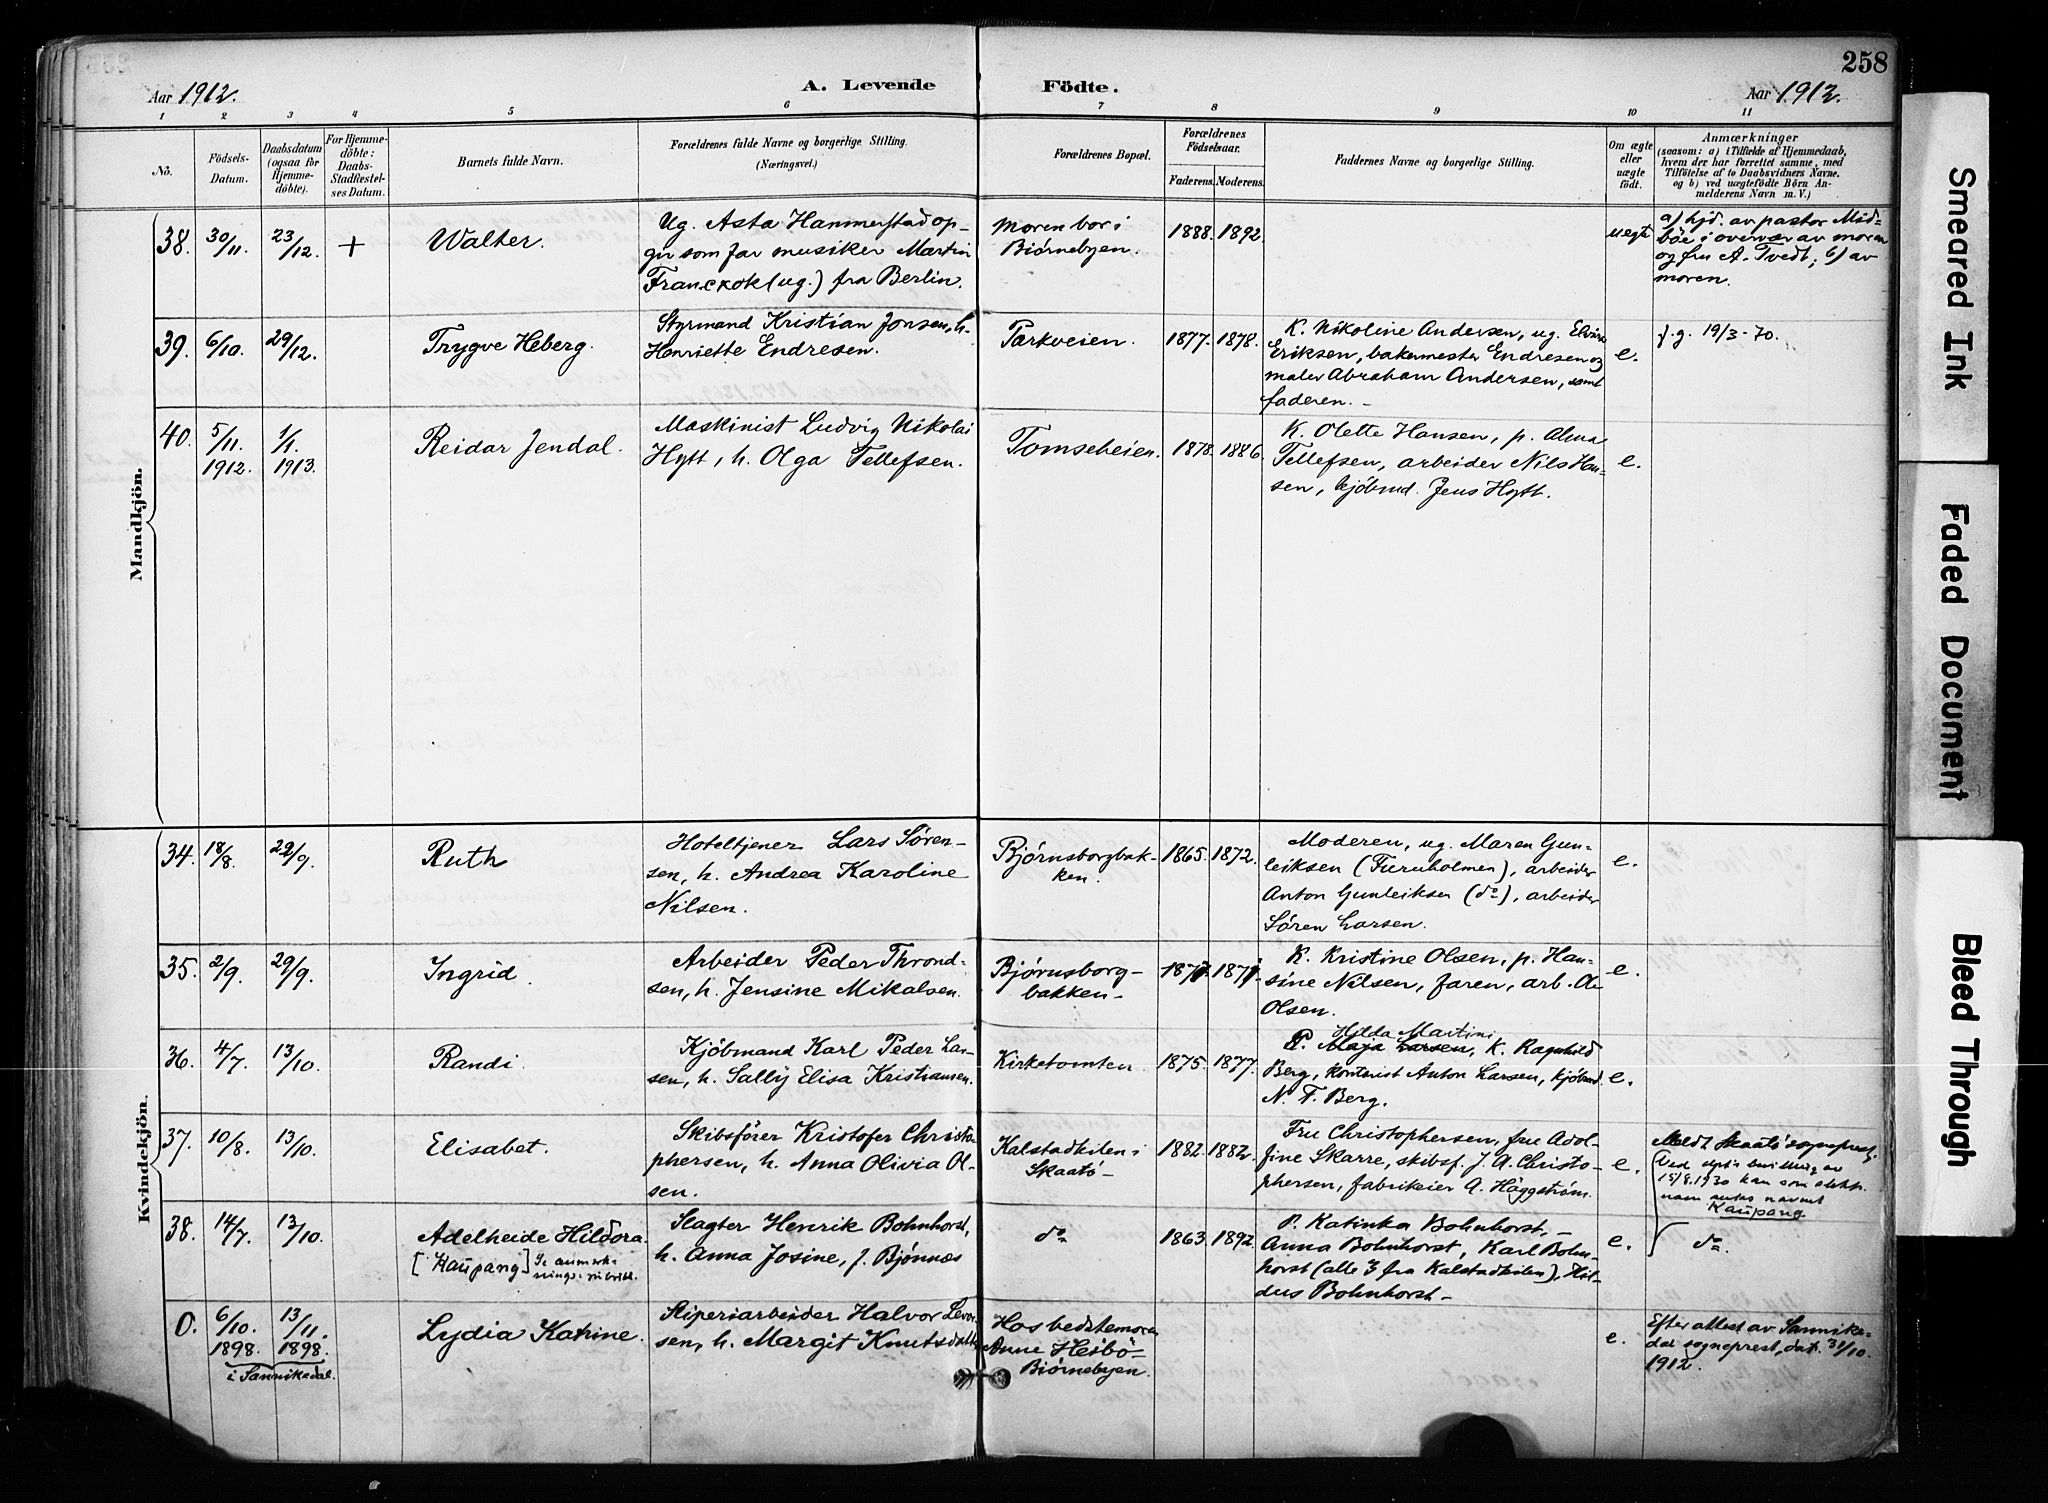 258
Aar 1912.
A. Levende Födte.
Aar 1912.
1 2 3 4 5 6 7 8 9 10 11
No.
Födsels-
Datum.
Daabsdatum
(ogsaa for
Hjemme-
döbte).
For Hjemme-
döbte:
Daabs-
Stadfæstel-
ses Datum.
Barnets fulde Navn.
Forældrenes fulde Navne og borgerlige Stilling.
(Næringsvei.)
Forældrenes Bopæl.
Forældrenes
Födselsaar.
Faderens. Moderens.
Faddernes Navne og borgerlige Stilling.
Om ægte
eller
uægte
födt.
Anmærkninger
(saasom: a) i Tilfælde af Hjemmedaab,
hvem der har forrettet samme, med
Tilföielse af to Daabsvidners Navne.
og b) ved uægtefödte Börn An-
melderens Navn m. V.)
Mandkjön.
38. 30/11. 23/12. + Walter.
Ug. Asta Hammerstad op-
gir som far musiker Martin
Franckok (ug.) fra Berlin.
Moren bor i
Biørnebyen.
1888. 1892.
uegt
a) hjd. av pastor Mid-
böe i overvær av moren
og fru A. Tvedt; b) av
moren.
39. 6/10. 29/12. Trygve Heberg.
Styrmand Kristian Jonsen, h.
Henriette Endresen.
Parkveien.
1877. 1878.
K. Nikoline Andersen, ug. Elvira
Eriksen, bakermester Endresen og
maler Abraham Andersen, samt
faderen. -
e.
f.g. 19/3-70.
40. 5/11. 1912. 1/1. 1913. Reidar Jendal.
Maskinist Ludvig Nikolai
Hytt, h. Olga Tellefsen.
Tomseheien.
1878. 1886.
K. Olette Hansen, p. Alma
Tellefsen, arbeider Nils Han-
sen, kjöbmd. Jens Hytt.
e.
Kvindekjön.
34. 18/8. 22/9. Ruth
Hoteltjener Lars Søren-
sen, h. Andrea Karoline
Nilsen.
Bjørnsborgbak-
ken.
1865. 1872.
Moderen, ug. Maren Gun-
leiksen (Furuholmen), arbeider
Anton Gunleiksen (do), arbeider
Sören Larsen.
e.
35. 2/9. 29/9. Ingrid.
Arbeider Peder Thrond-
sen, h. Jensine Mikalsen.
Bjørnsborg-
bakken-
K. Kristine Olsen, p. Han-
sine Nilsen, faren, arb.
Olsen.
e.
36. 4/7. 13/10. Randi.
Kjöbmand Karl Peder Lar-
sen, h. Sally Elisa Kristiansen.
Kirketomten.
1875. 1877.
Hilda Martini
P. Maja Larsen, K. Ragnhild
Berg, kontorist Anton Larsen, kjöbmd.
N. F. Berg.
e.
37. 10/8. 13/10. Elisabet.
Skibsförer Kristofer Christo-
phersen, h. Anna Olivia Ol-
sen.
Kalstadkilen i
Skaatö-
1882. 1882.
Fru Christophersen, fru Adol-
fine Skarre, skibsf. J. A. Christo-
phersen, fabrikeier A. Häggström.
e.
Meldt Skaatö sogneprest.
Ved dpt's bevilling av
15/8.1930 kan som slekts-
navn antas navnet
Kaupang.
38. 14/7. 13/10. Adelheide Hildora.
[Kaupang] Se anmerk-
nings-rubrikk.
Slagter Henrik Bohnhorst,
h. Anna Josine, f. Bjönnæs
do
1863. 1892.
P. Katinka Bohnhorst, -
Anna Bohnhorst, Karl Bohn-
horst (alle 3 fra Kalstadkilen), Hil-
dus Bohnhorst -
e.
do.
0. 6/10. 1898. 13/11. 1898.
i Sannikedal.
Lydia Katrine.
Sliperiarbeider Halvor Levor-
sen, h. Margit Knutsdatter
Hos bedstemoren
Anne Heibö-
Biørnebyen.
e.
Efter attest av Sannike-
dal sogneprest, dat. 31/10.
1912.
Smeared Ink
Faded Document
Bleed Through